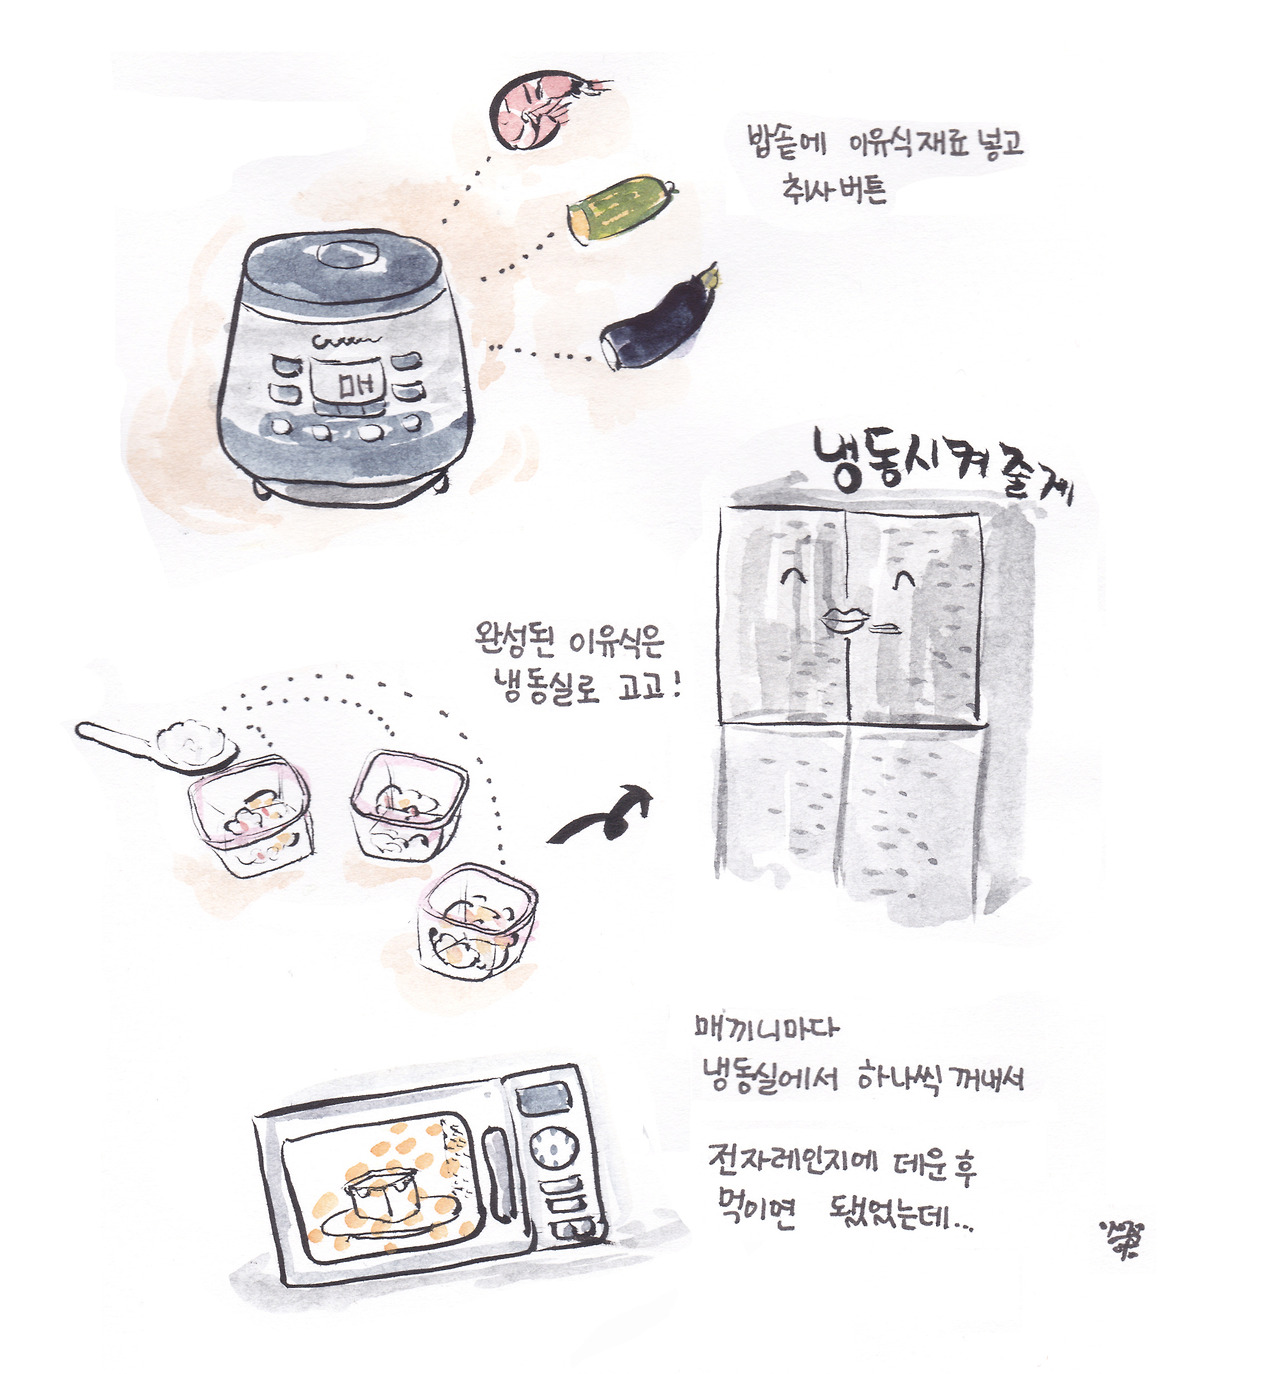 밥솥에 이유식 재료 넣고
취사버튼
매
냉동시켜줄게
완성된 이유식은
냉동실로 고고!
매끼니마다
냉동실에서 하나씩 꺼내서
전자레인지에 데운 후
먹이면 됐었는데...